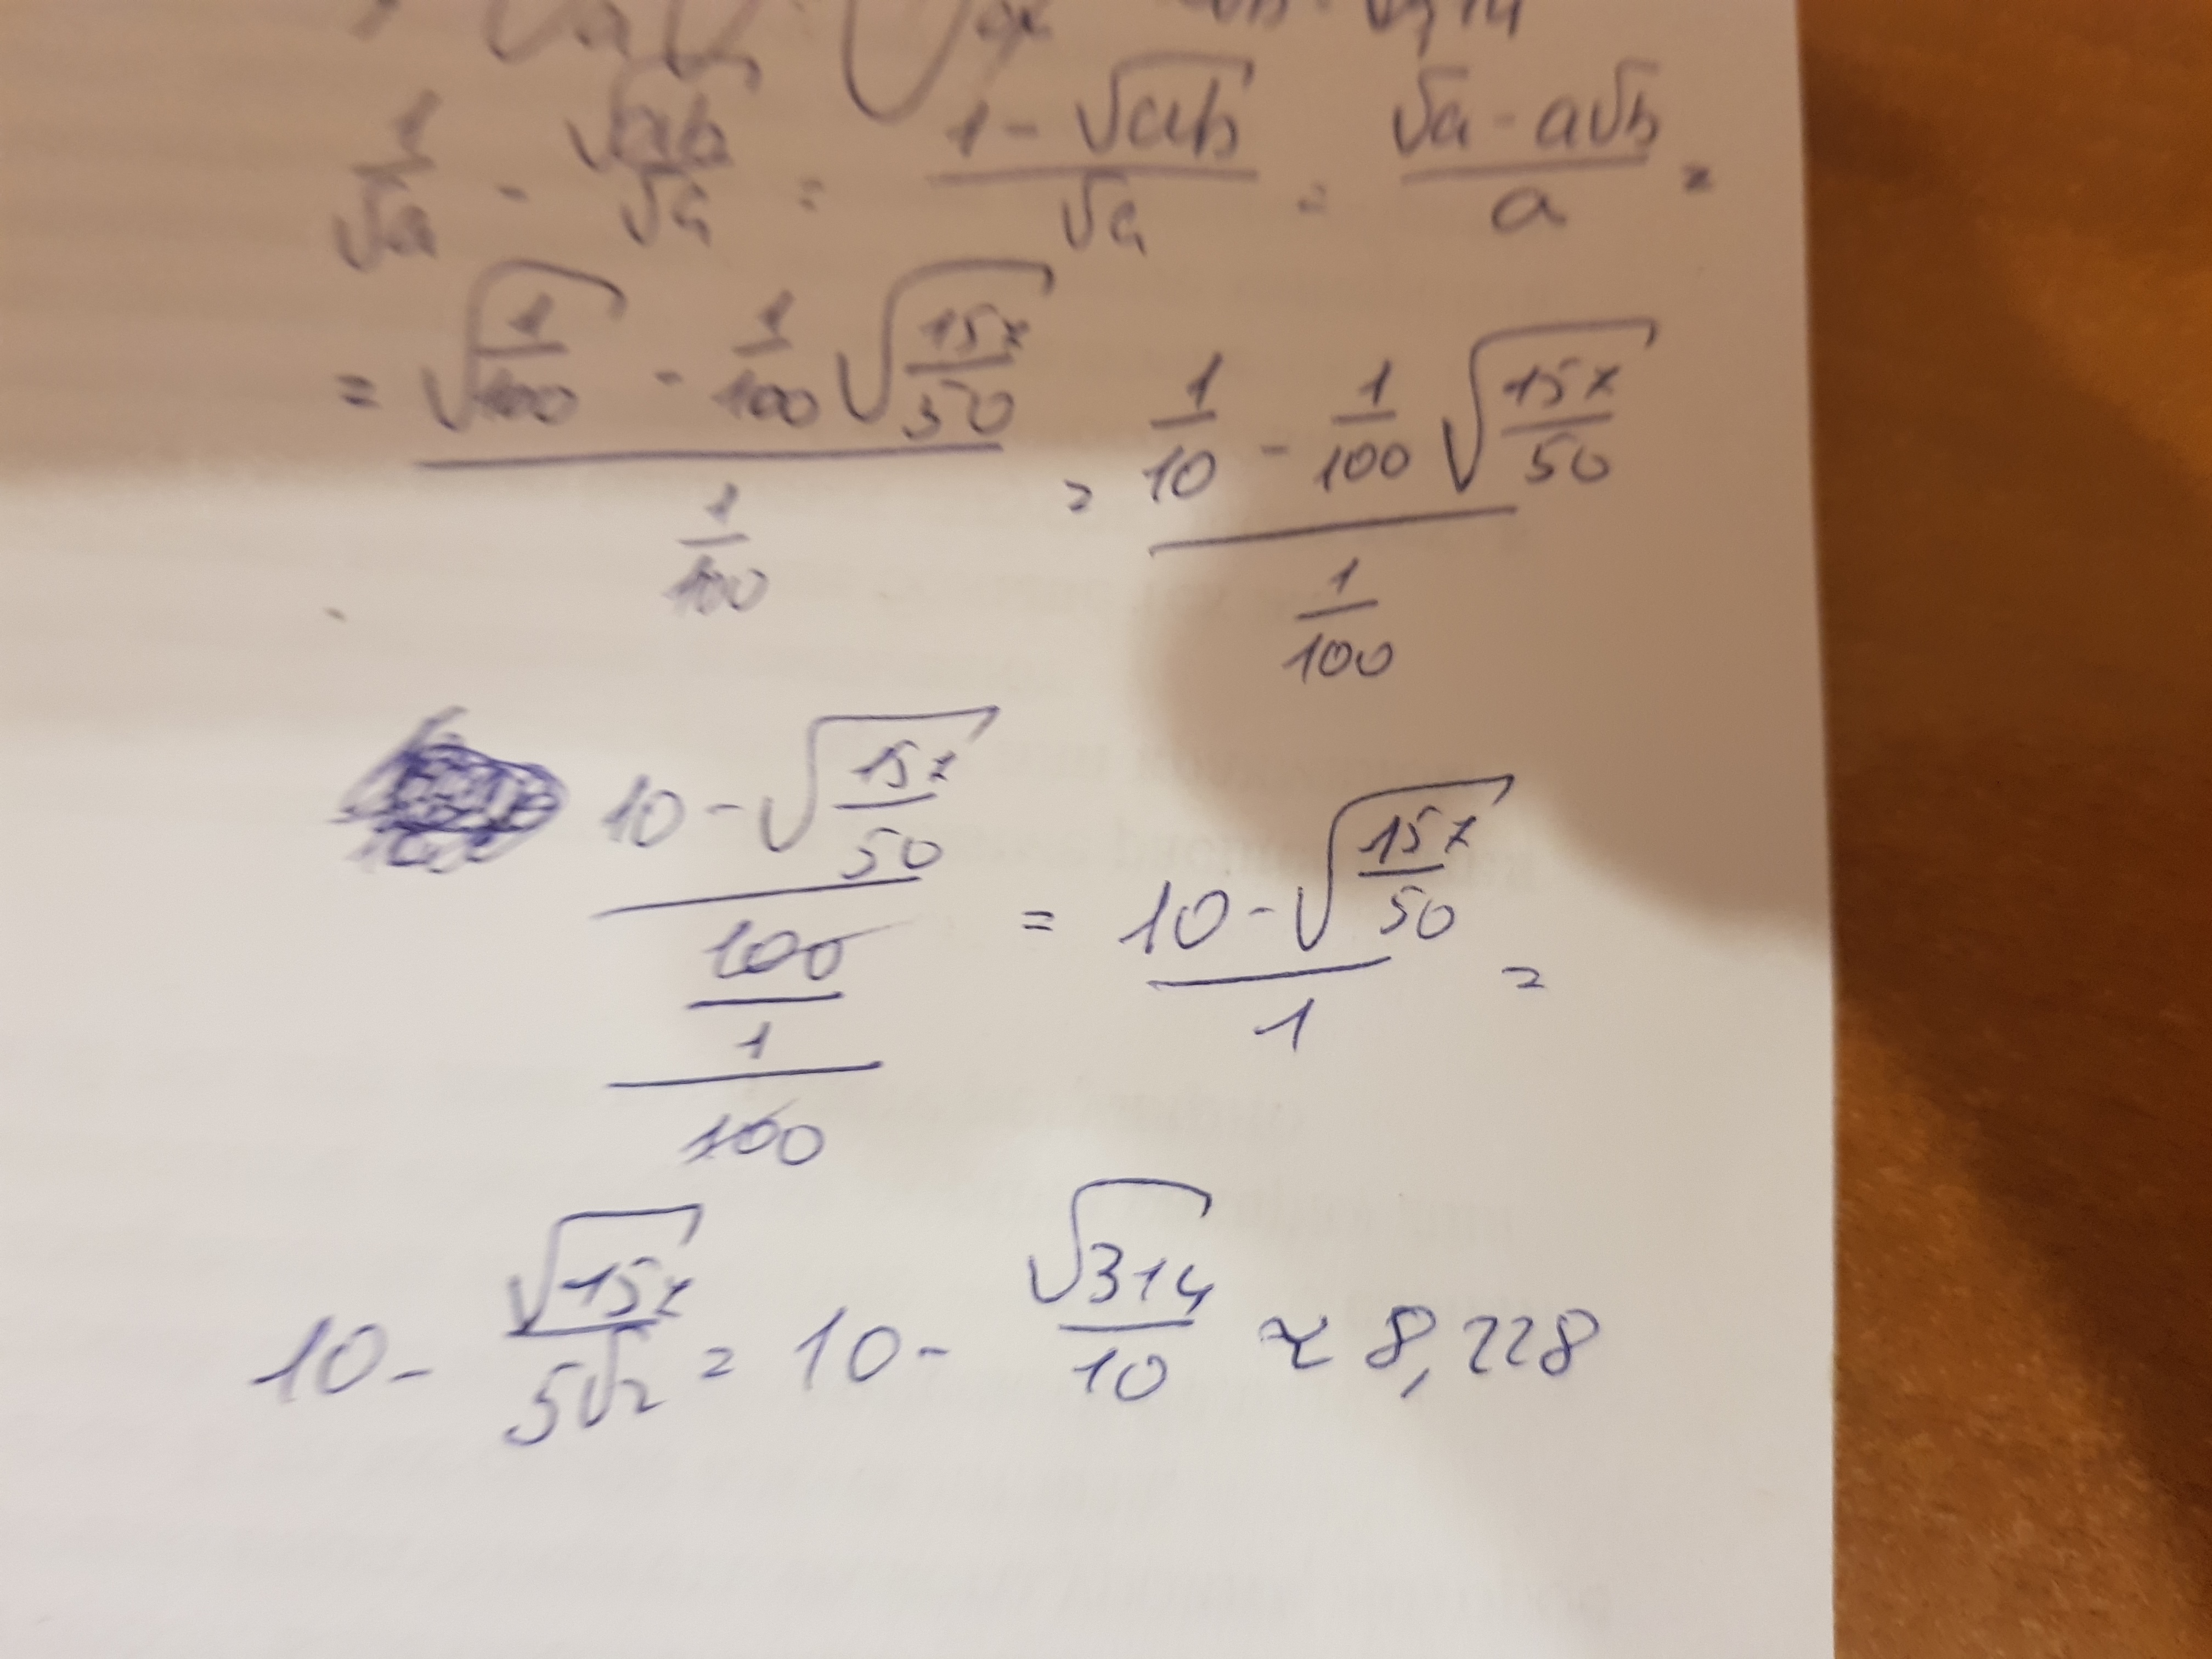 1/√a - √ab/√a = (1 - √ab)/√a = (√a - a√b)/a =
= (√(1/100) - 1/100 √(157/50))/(1/100) = (1/10 - 1/100 √(157/50))/(1/100)
((10 - √(157/50))/100)/(1/100) = (10 - √(157/50))/1 =
10 - √157/5√2 = 10 - √314/10 ≈ 8,228